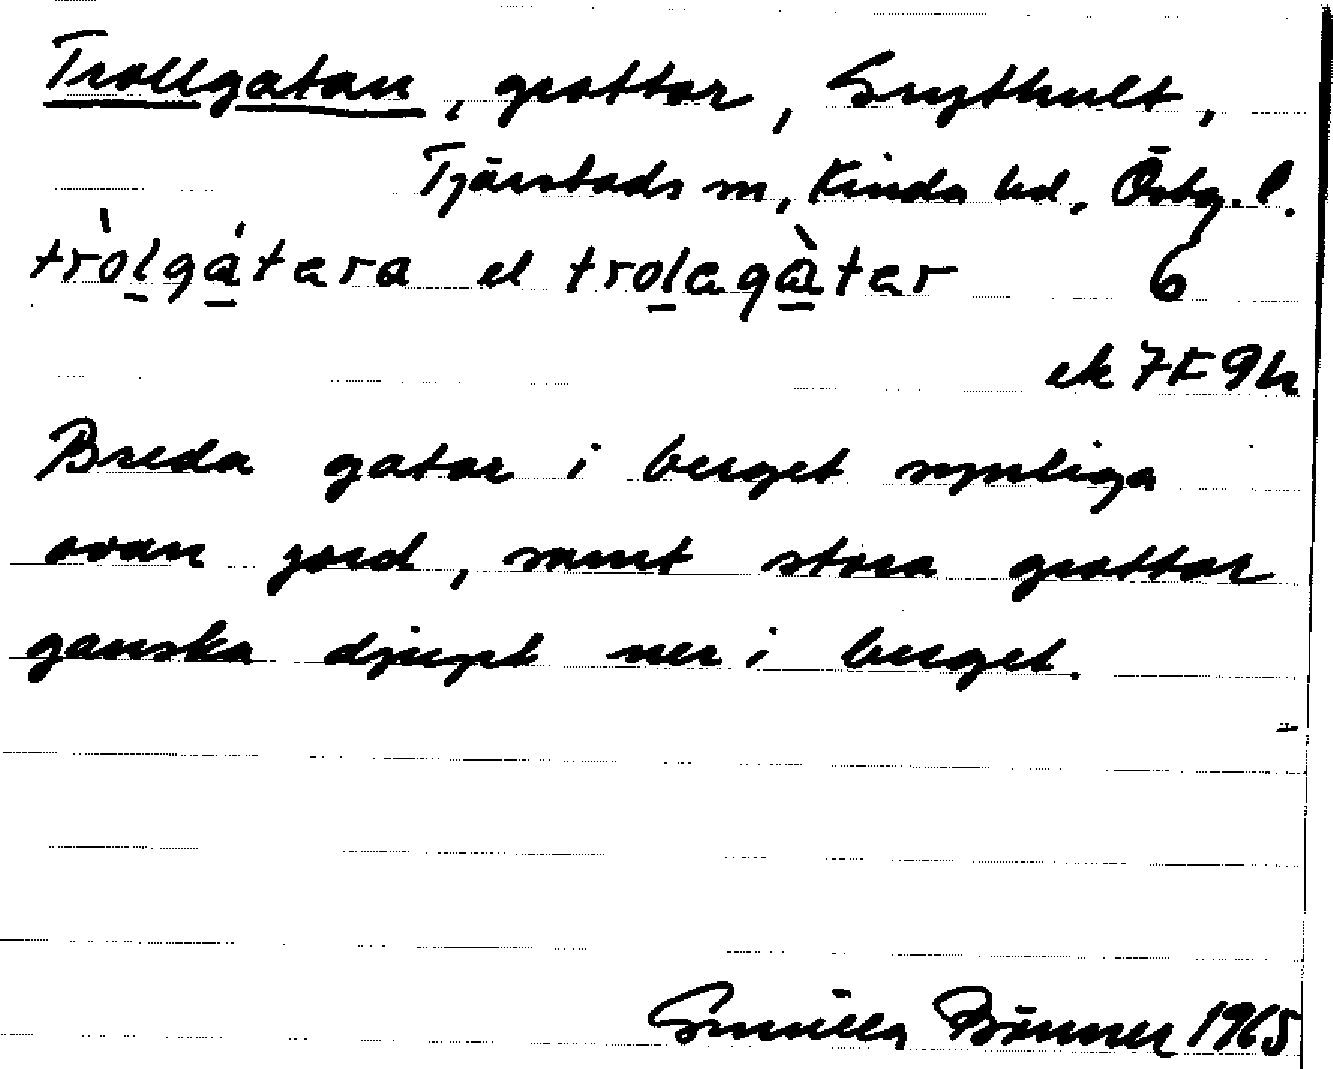 Trollgatan, grottor, Grythult,
Tjärstads sn, Kinda hd, Östg. l.
tròlgátara el trolagàtar 6
ek 7F9h
Breda gator i berget synliga
ovan jord, samt stora grottor
ganska djupt ner i berget.
Gunilla Bönner 1965